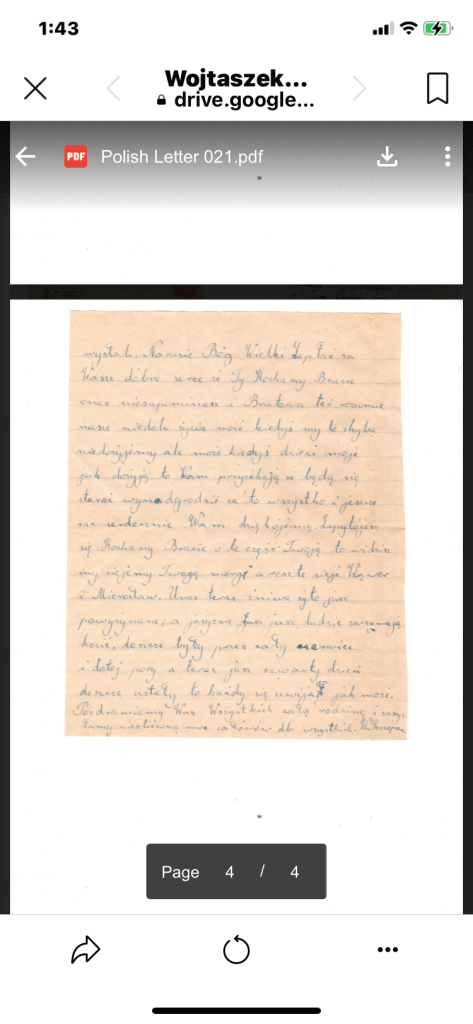 1:43
Wojtaszek...
drive.google...
PDF Polish Letter 021.pdf
wysłali. No a nie Bóg Wielki Zapłać za
Wasze dobre serce że Ty Kochany Bracie
o nas niezapominasz i Bratowa też rozumie
nasze niedole życia może kiedyś my to chyba
niedożyjemy ale może kiedyś dzieci moje
jak dożyją to Wam przyrzekają że będą się
starać wynadgrodzić za to wszystko i jeszcze
raz serdecznie Wam dziękojemy. Zapytójesz
się Kochany Bracie o te część Twoją to widzisz
my siejemy Twoją morgę a resztę sieje
i Mierosław. U nas teraz żniwa żyto już
powyżynane, a jarzyne już ludzie zaczynają
kosić, deszcze były przez cały czerwiec
i dotej pory a teraz już czwarty dzień
deszcze ustały to każdy się uwija jak może.
Pozdrawiamy Was Wszystkich całą rodziną i zasy-
łamy niezliczoną moc całósów dla wszystkich.
Page 4 / 4